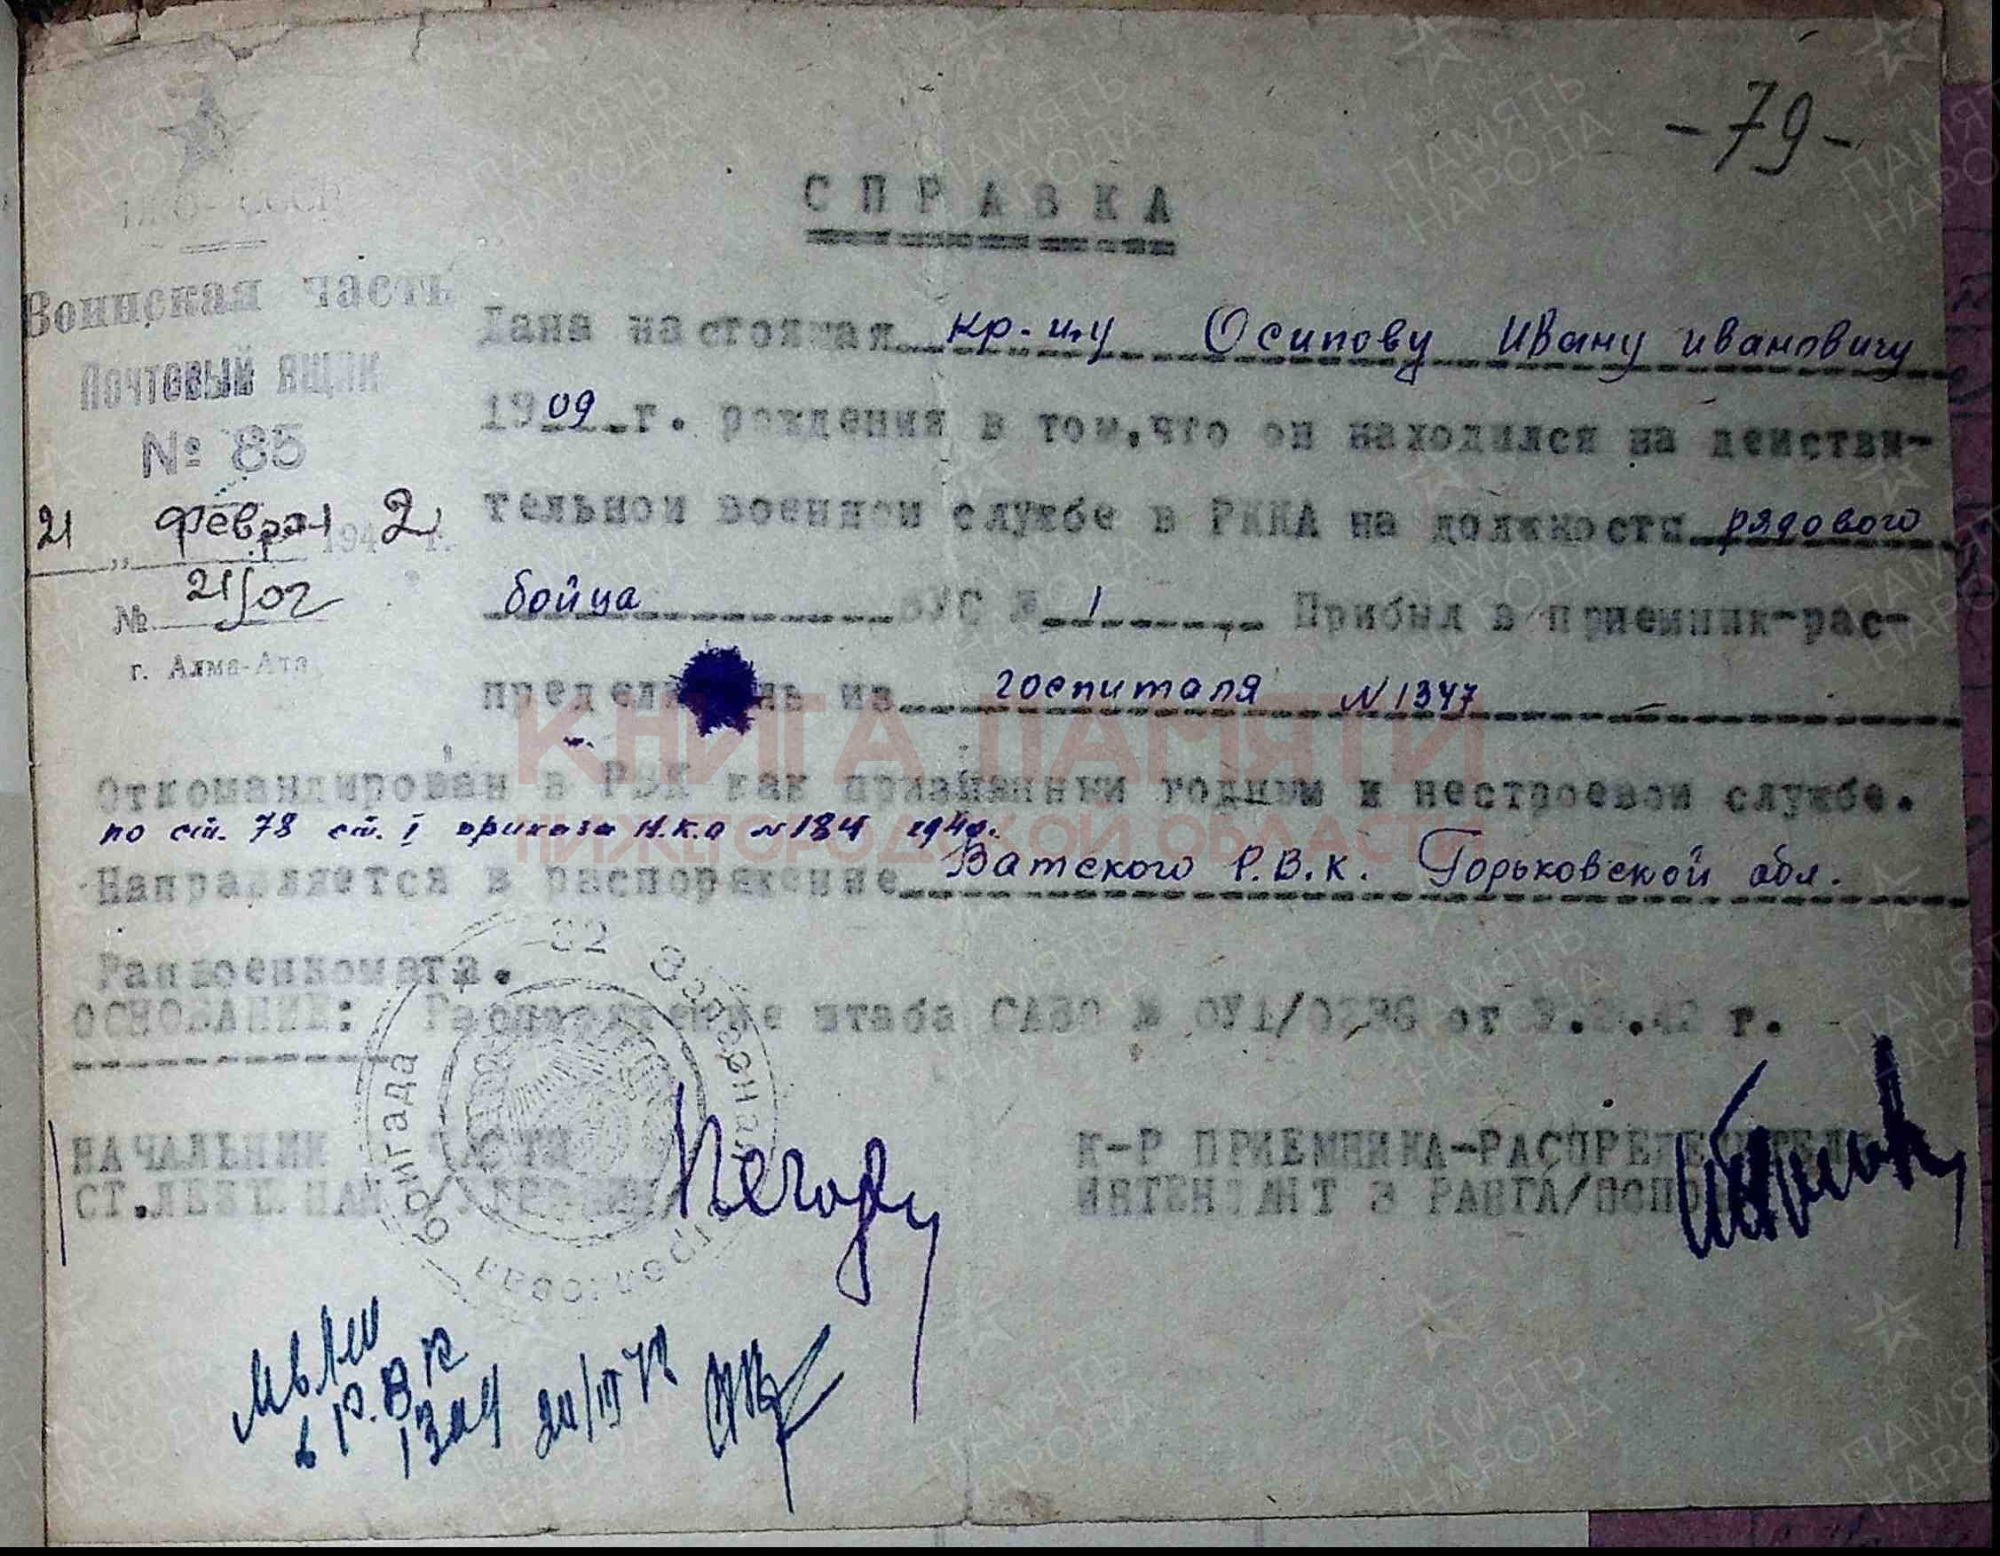 - 79 -
НКО - СССР
Воинская часть
Почтовый ящик
№ 85
21 " феврал 1942 г.
№ 21/02
г. Алма-Ата
СПРАВКА
Дана настоящая кр-цу Осипову Ивану Ивановичу
1909 г. рождения в том, что он находился на действи-
тельной военной службе в РККА на должности рядового
бойца ВУС № 1 Прибыл в приемник-рас-
пределитель из госпиталя N 1347
Откомандирован в РВК как признанный годным к нестроевой службе.
по ст. 78 ст. I приказа Н.К.О N 184 1940.
Направляется в распоряжение Ватского Р.В.К. Горьковской обл.
Райвоенкомата.
ОСНОВАНИЕ: Распоряжение штаба САВО № ОУ1/0236 от 42 г.
НАЧАЛЬНИК ЧАСТИ
СТ. ЛЕЙТЕНАНТ
К-Р ПРИЕМНИКА-РАСПРЕДЕЛИТЕЛЯ
ИНТЕНДАНТ 3 РАНГА
32 Запасная стрелковая бригада
в Р.В.К
КНИГА ПАМЯТИ
НИЖЕГОРОДСКОЙ ОБЛАСТИ
ПАМЯТЬ НАРОДА